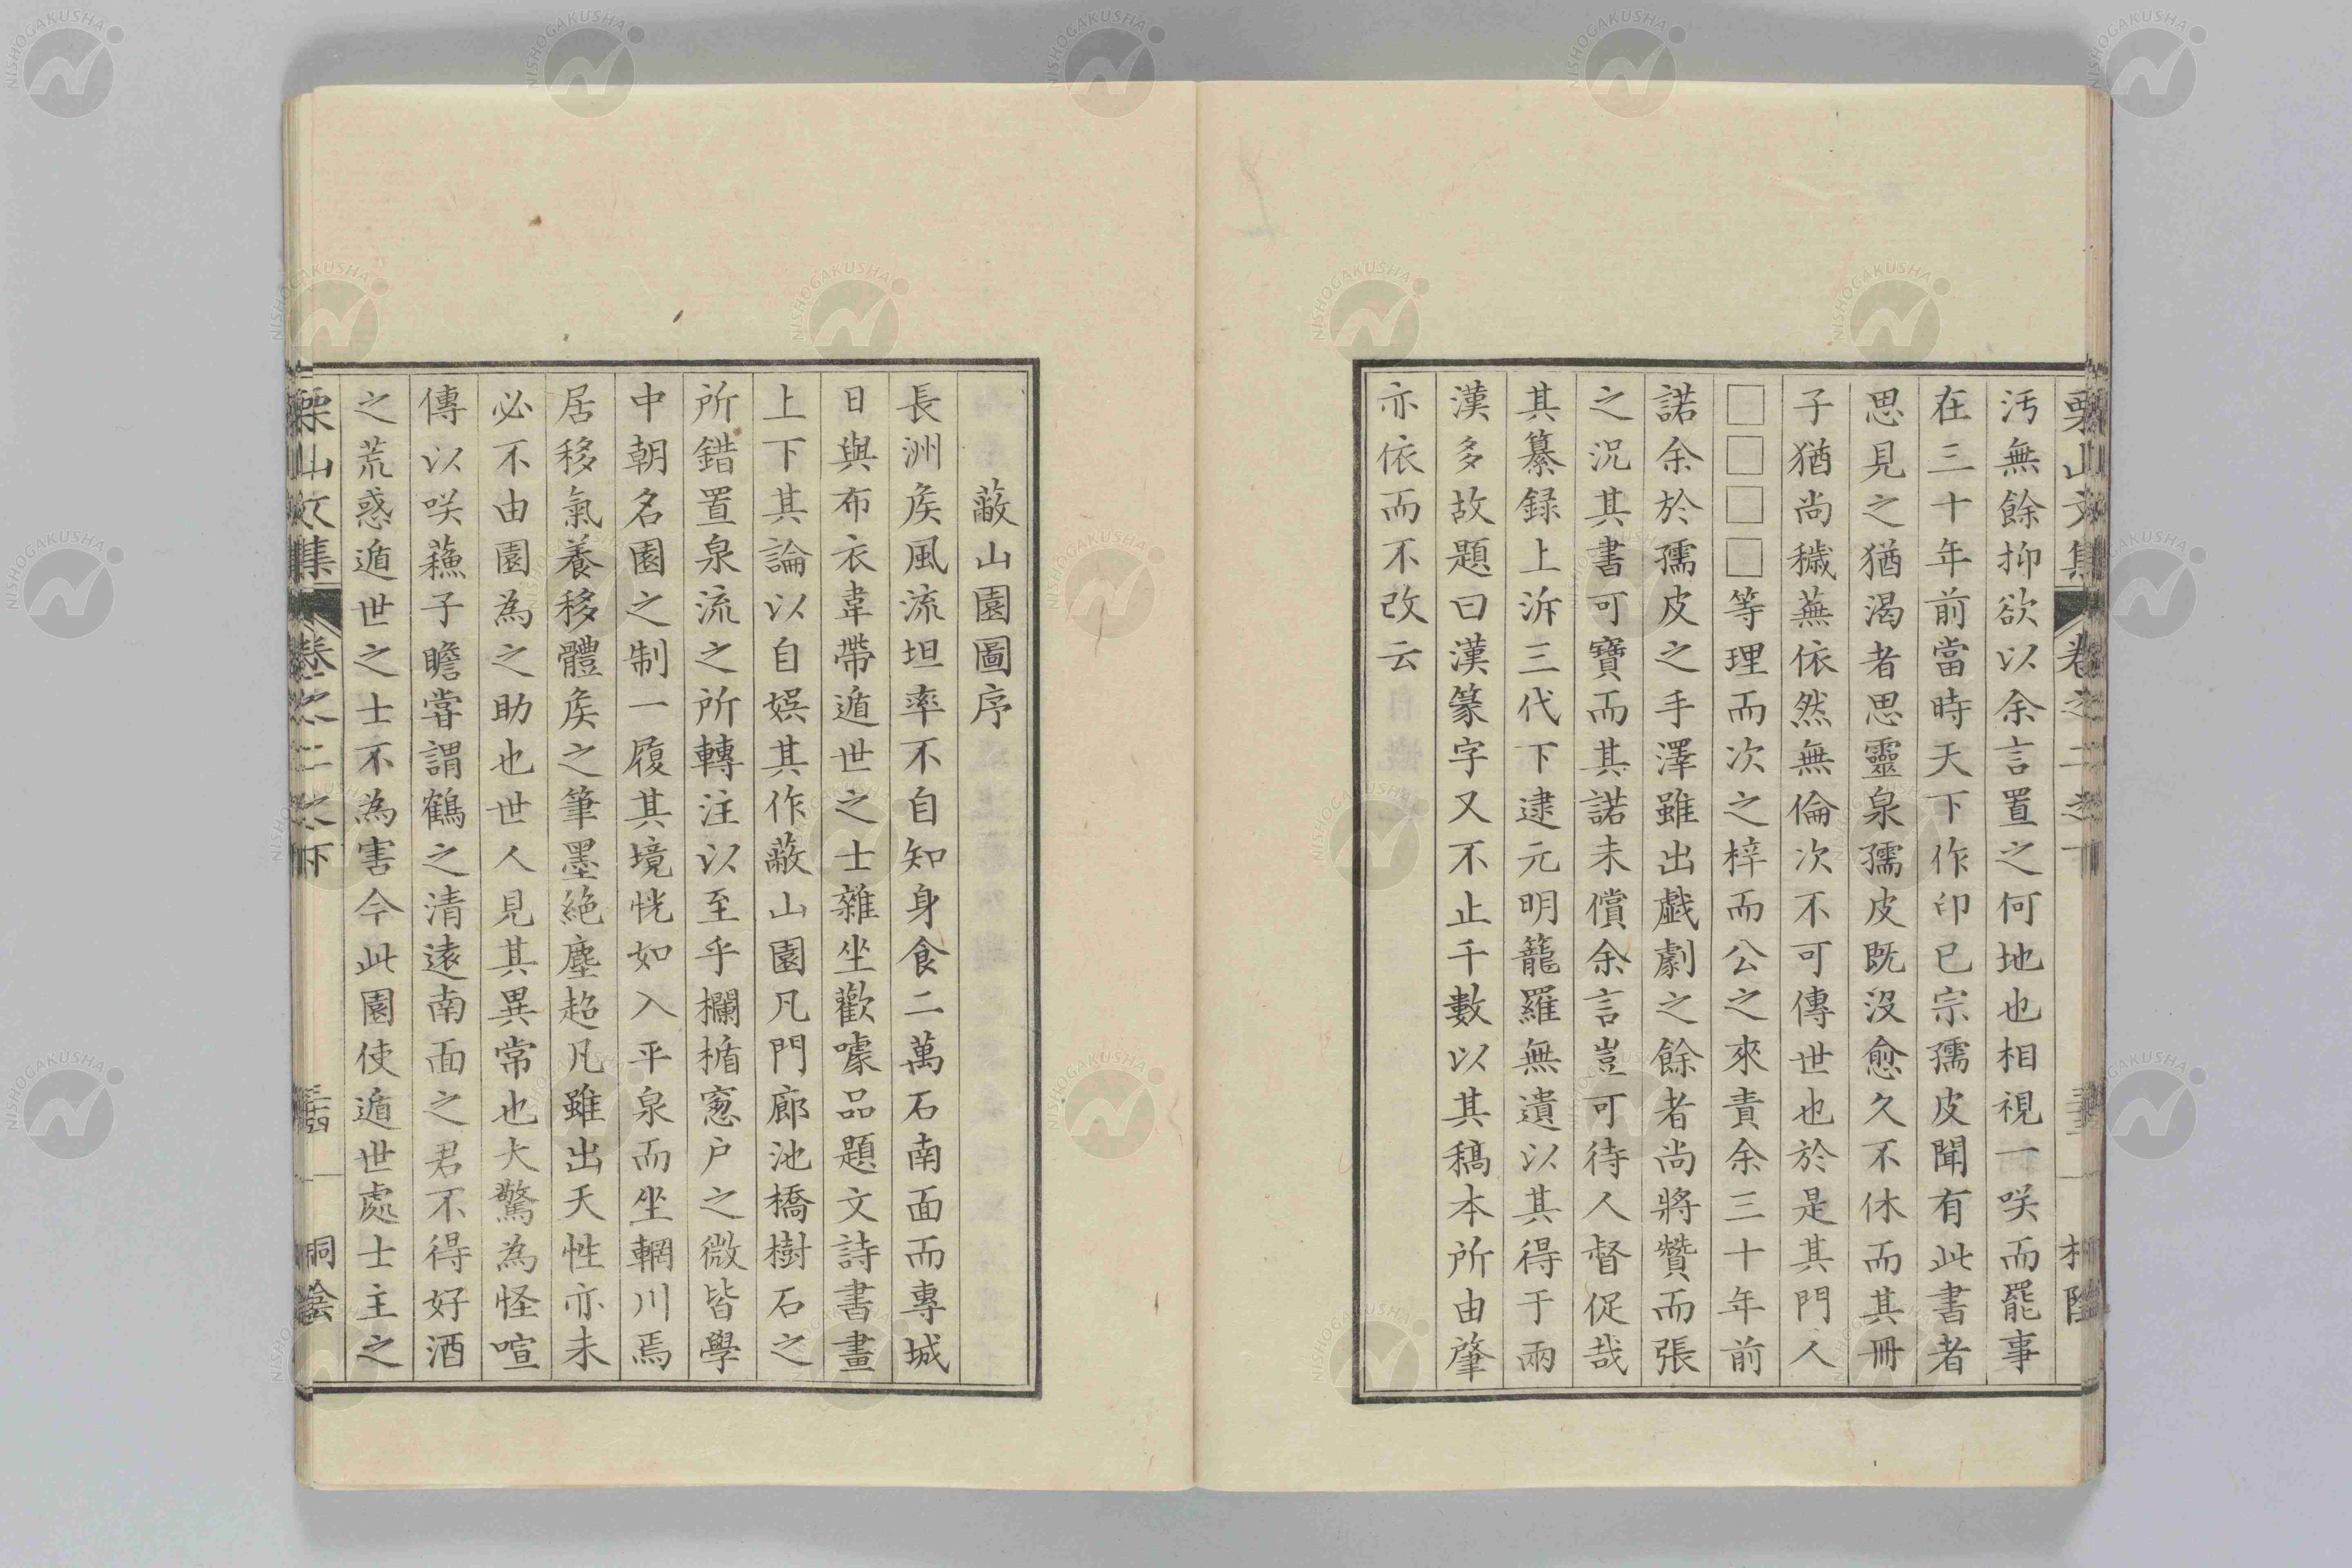 汚無餘抑欲以余言置之何地也相視一咲而罷事
在三十年前當時天下作印已宗孺皮聞有此書者
思見之猶渇者思靈泉孺皮既沒愈久不休而其冊
子猶尚穢蕪依然無倫次不可傳世也於是其門人
□□□□等理而次之梓而公之來責余三十年前
諾余於孺皮之手澤雖出戯劇之餘者尚將贊而張
之況其書可寶而其諾未償余言豈可待人督促哉
其纂録上泝三代下逮元明籠羅無遺以其得于兩
漢多故題曰漢篆字又不止千數以其稿本所由肇
亦依而不改云
蔽山園圖序
長洲矦風流坦率不自知身食二萬石南面而專城
日與布衣韋帶遁世之士雜坐歡噱品題文詩書畫
上下其論以自娯其作蔽山園凡門廊池橋樹石之
所錯置泉流之所轉注以至乎欄楯窓户之微皆學
中朝名園之制一履其境恍如入平泉而坐輞川焉
居移氣養移體矦之筆墨絶塵超凡雖出天性亦未
必不由園為之助也世人見其異常也大驚為怪喧
傳以咲蘓子瞻甞謂鶴之清遠南面之君不得好酒
之荒惑遁世之士不為害今此園使遁世處士主之
栗山文集
卷之二之下
三十四
桐陰